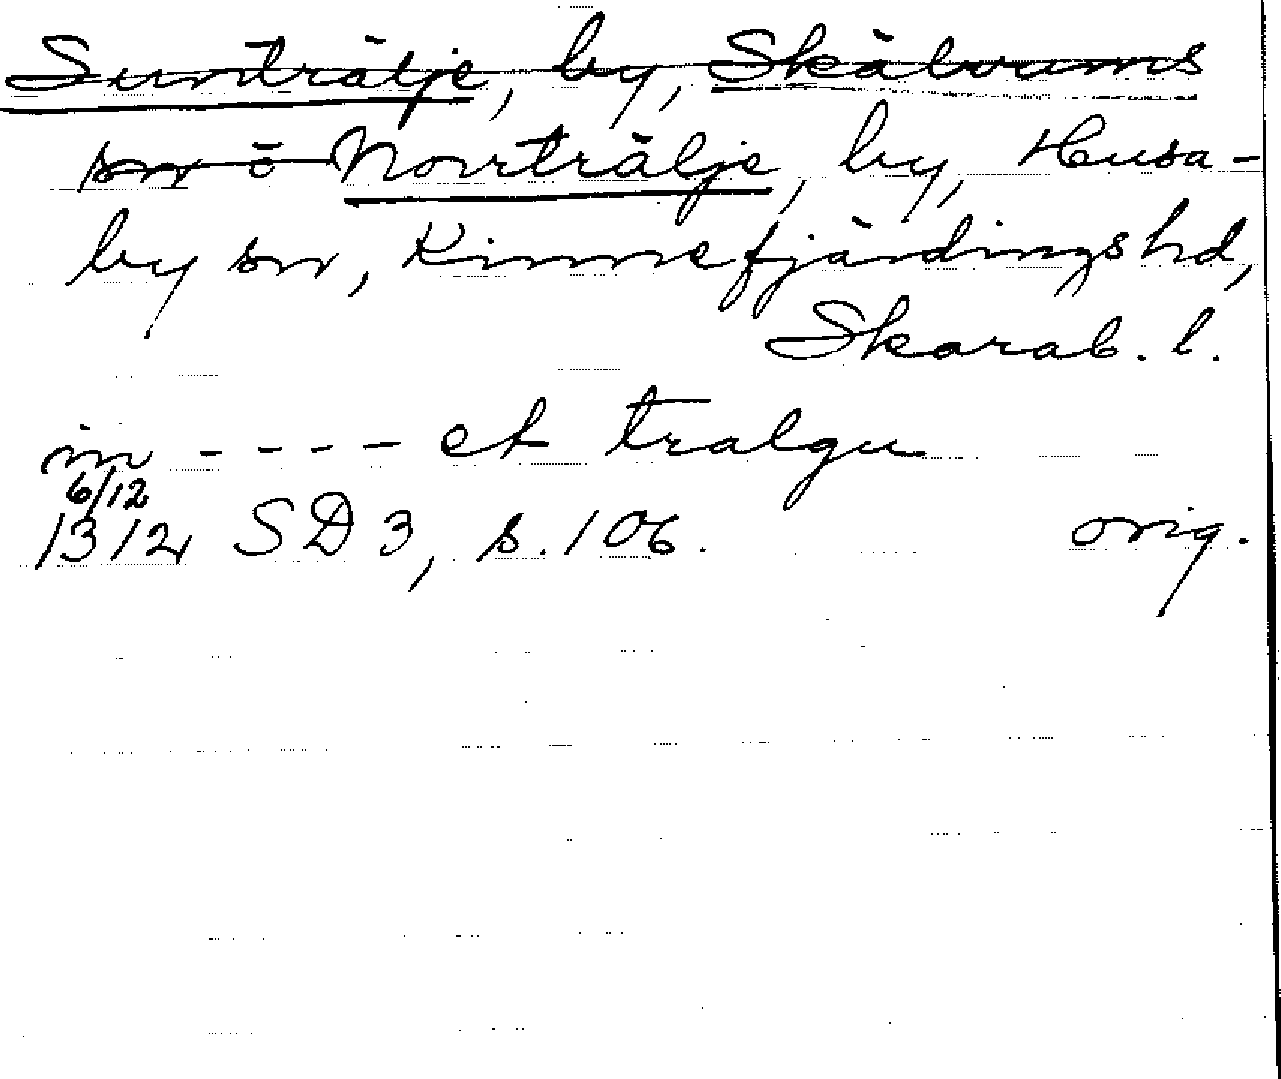 Surträlje, by, Skälvums
sn o Norrträlje, by, Husa-
by sn, Kinnefjärdings hd,
Skarab. l.
in - - - - et tralgu
6/12
1312 SD 3, s. 106. orig.